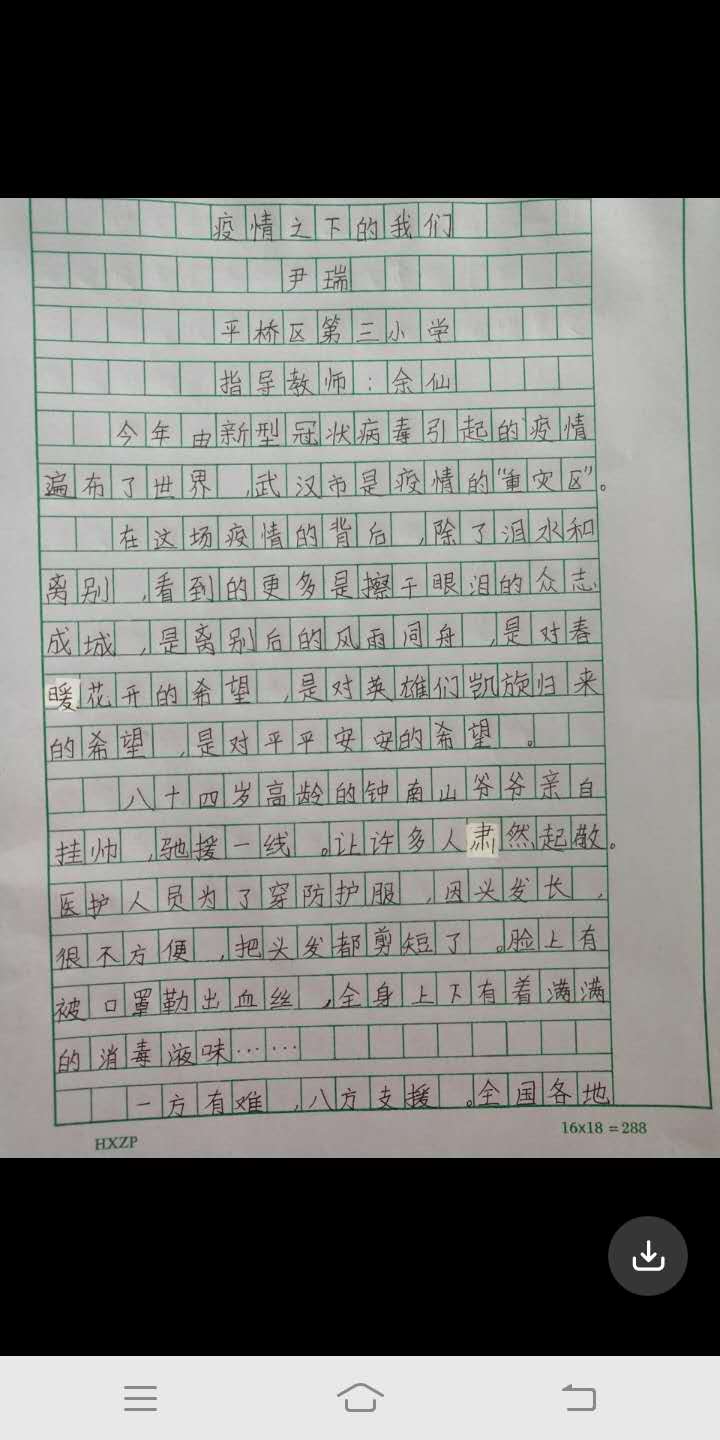 疫情之下的我们
尹瑞
平桥区第三小学
指导教师：余仙
今年由新型冠状病毒引起的疫情
遍布了世界，武汉市是疫情的“重灾区”。
在这场疫情的背后，除了泪水和
离别，看到的更多是擦干眼泪的众志
成城，是离别后的风雨同舟，是对春
暖花开的希望，是对英雄们凯旋归来
的希望，是对平平安安的希望。
八十四岁高龄的钟南山爷爷亲自
挂帅，驰援一线。让许多人肃然起敬。
医护人员为了穿防护服，因头发长，
很不方便，把头发都剪短了。脸上有
被口罩勒出血丝，全身上下有着满满
的消毒液味……
一方有难，八方支援。全国各地
HXZP
16×18=288